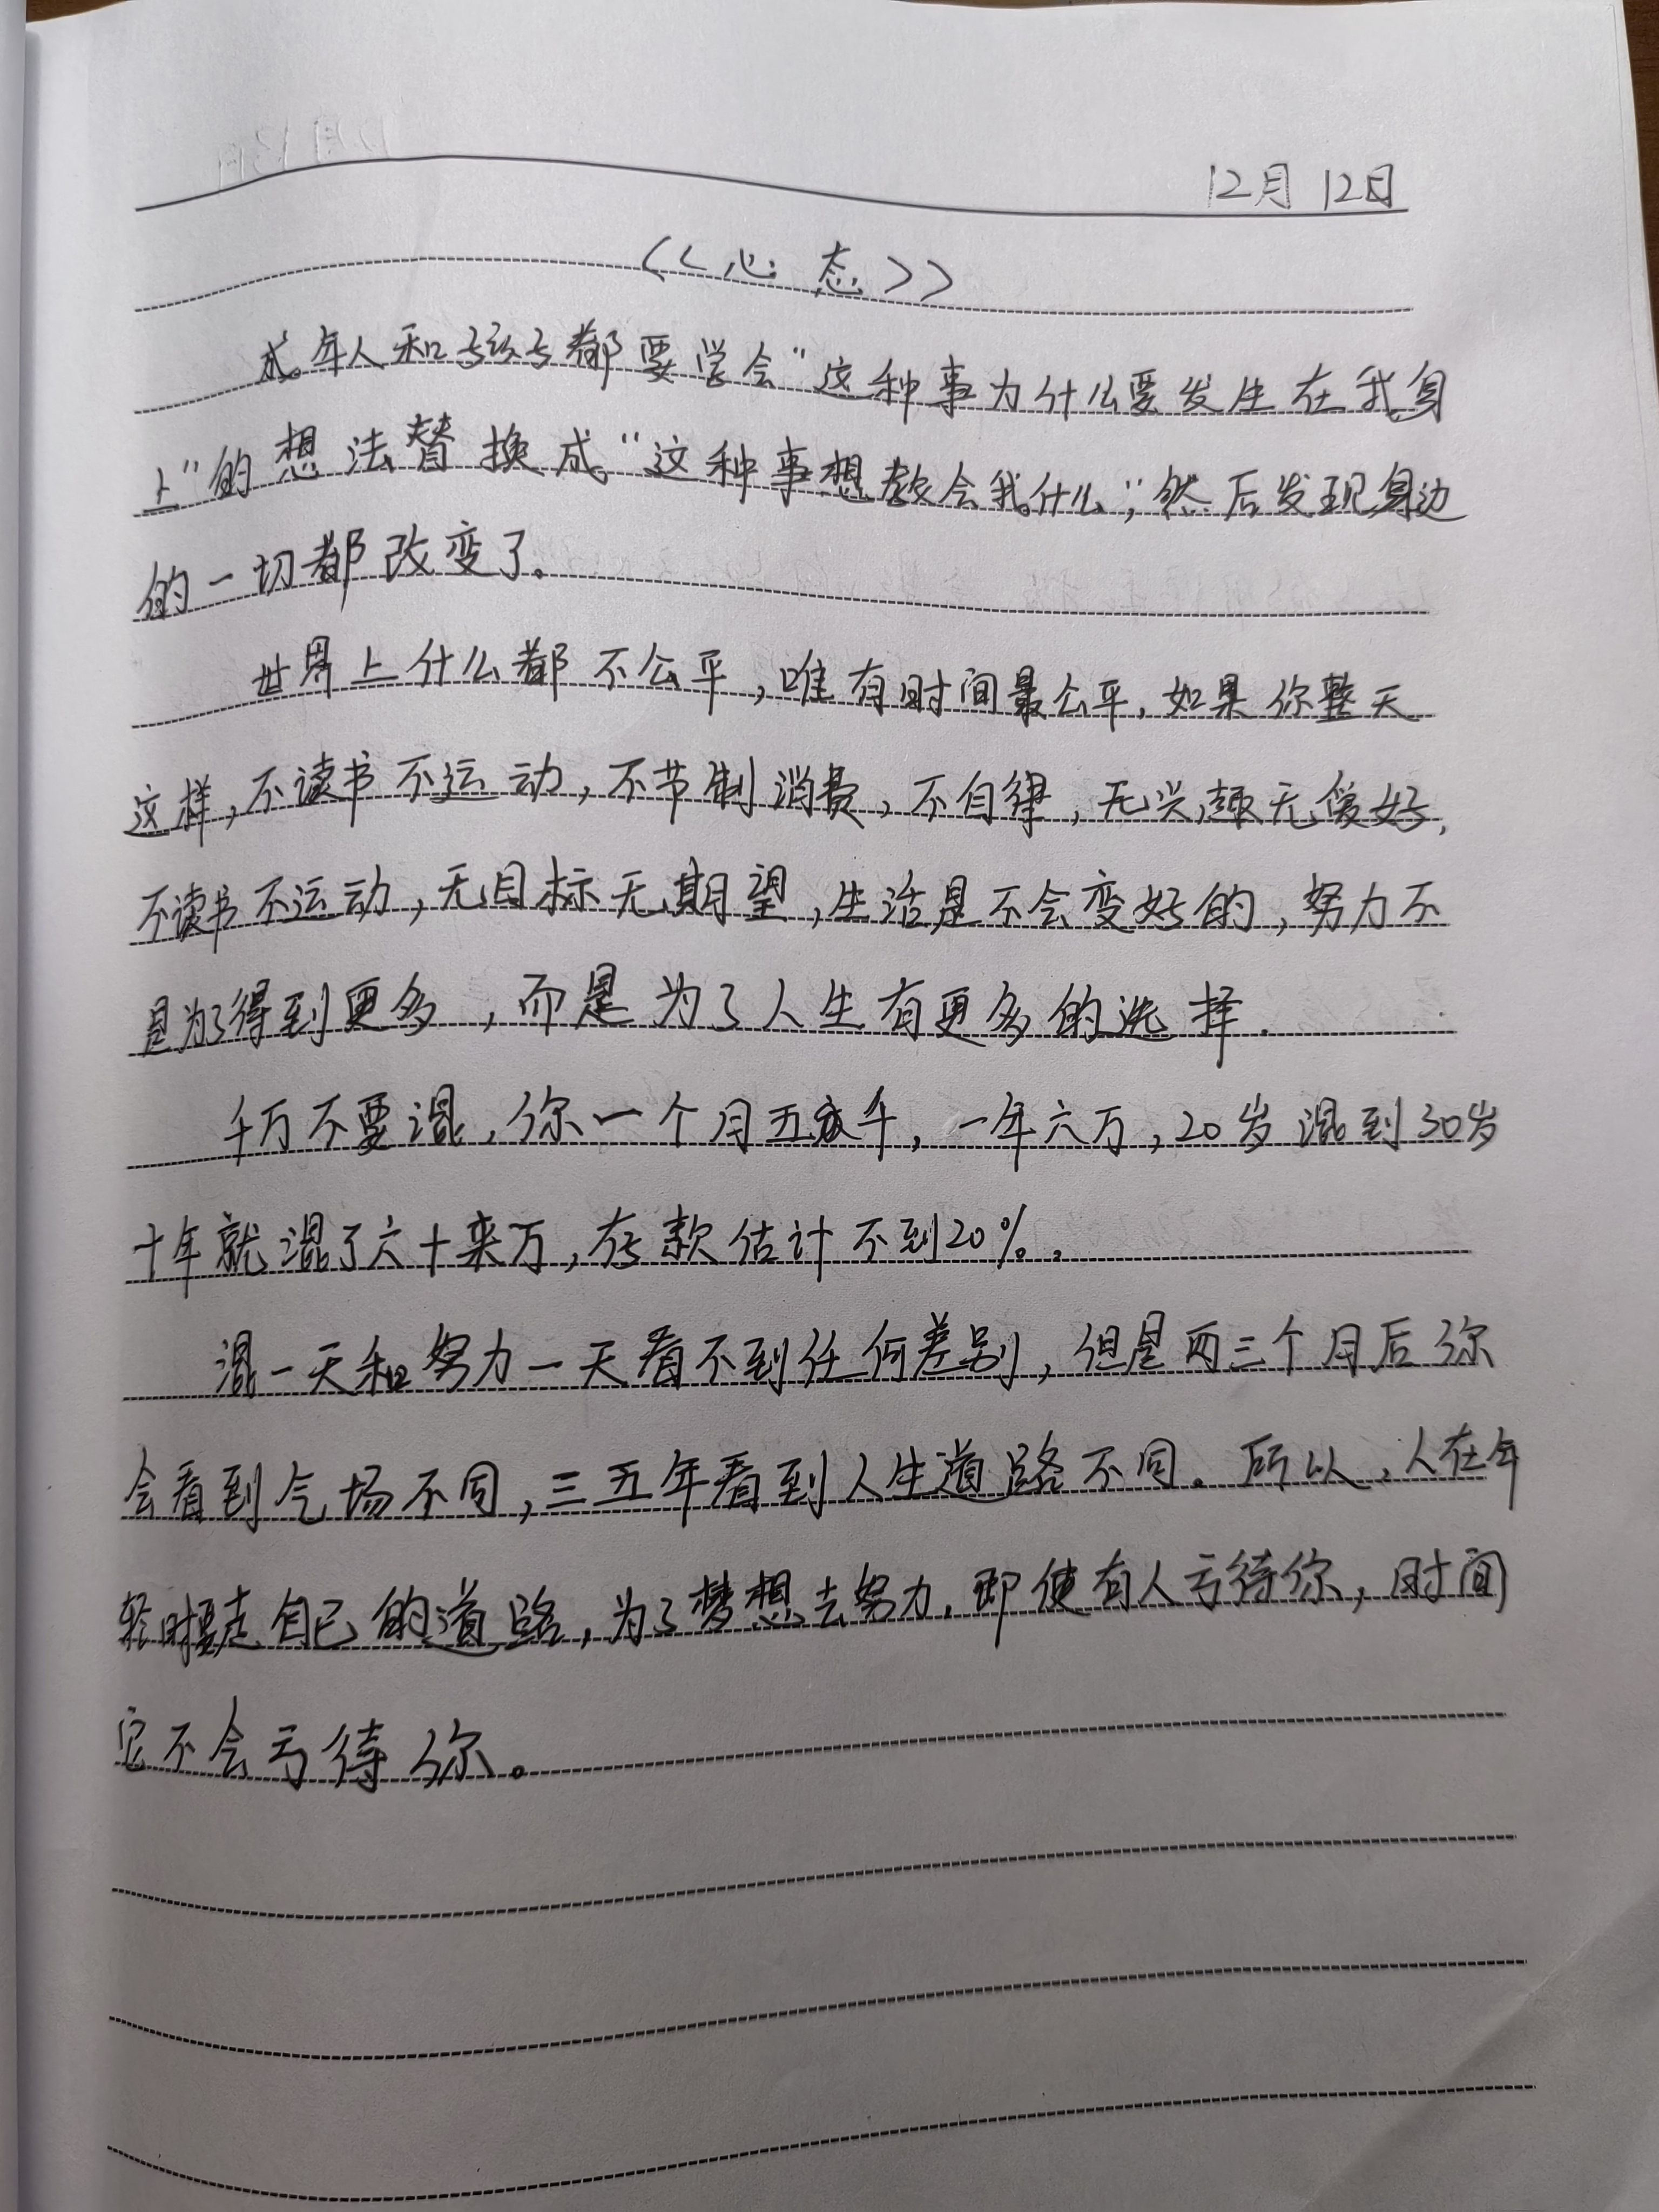 12月12日
<<心态>>
成年人和孩子都要学会“这种事为什么要发生在我身
上”的想法替换成“这种事想教会我什么”，然后发现身边
的一切都改变了。
世界上什么都不公平，唯有时间最公平，如果你整天
这样，不读书不运动，不节制消费，不自律，无兴趣无爱好，
不读书不运动，无目标无期望，生活是不会变好的，努力不
是为了得到更多，而是为了人生有更多的选择.
千万不要混，你一个月五千，一年六万，20岁混到30岁
十年就混了六十来万，存款估计不到20%。
混一天和努力一天看不到任何差别，但是两三个月后你
会看到气场不同，三五年看到人生道路不同。所以，人在年
轻时要走自己的道路，为了梦想去努力，即使有人亏待你，时间
它不会亏待你。